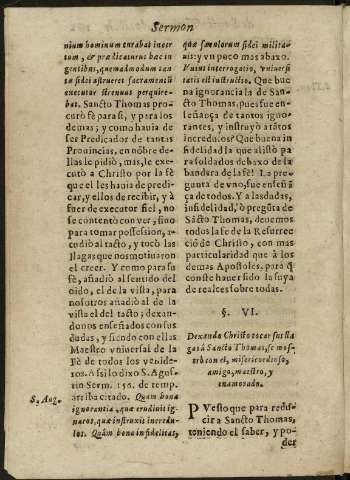 Sermon
nium hominum curabat incer
tum, & prædicaturus hæc in
gentibus, quemadmodum tan
ta fidei astrueret sacramentũ
executor strenuus perquire-
bat. Sancto Thomas pro-
curò fè para sì, y para los
demas; y como hauia de
ser Predicador de tantas
Prouincias, en nõbre de-
llas le pidiò, mas, le exe-
cutò a Christo por la fè
que el les hauia de predi-
car, y ellos de recibir, y à
fuer de executor fiel, no
se contentò con ver, sino
para tomar possession, a-
cudiò al tacto, y tocò las
llagas que nos motiuaron
el creer. Y como para su
fè, añadiò al sentido del
oìdo, el de la vista, para
nosotros añadiò al de la
vista el del tacto; dexan-
donos enseñados con sus
dudas, y siendo con ellas
Maestro vniuersal de la
Fè de todos los venide-
ros. Assi lo dixo S. Agus-
tin Serm. 150. de temp.
arriba citado. Quam bona
ignorantia, quæ erudiuit ig-
naros, quæ instruxit incredu-
los. Quàm bona infidelitas,
S. Aug.
quæ sæculorum fidei milita-
uit: y vn poco mas abaxo.
Vnius interrogatio, vniuersi
tatis est instructio. Que bue
na ignorancia la de San-
cto Thomas, pues fue en-
señança de tantos igno-
rantes, y instruyò a tãtos
incredulos? Que buena in
fidelidad la que alistò pa
ra soldados debaxo de la
bandera de la fè! La pre-
gunta de vno, fue enseñã
ça de todos. Y a las dudas,
infidelidad, ò pregũta de
Sãcto Thomas, deuemos
todos la fe de la Resurrec
ciò de Christo, con mas
particularidad que à los
demas Apostoles, para q̃
conste hauer sido la suya
de realces sobre todas.
§. VI.
Dexando Christo tocar sus lla
gas à Sancto Thomas, se mos-
trò con el, misericordioso,
amigo, maestro, y
enamorado.
PVesto que para redu-
cir a Sancto Thomas,
teniendo el saber, y po-
der